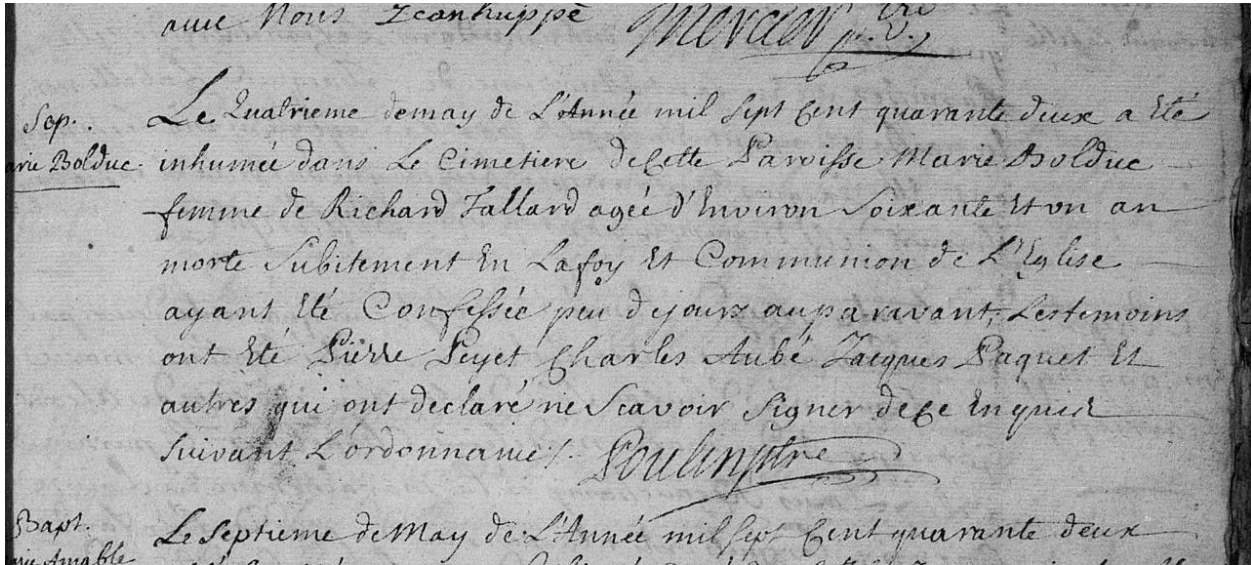 avec Nous Jean huppé Mercier ptre
Sep.. Le Quatrieme de may de L'Année mil sept Cent quarante deux a Eté
arie Bolduc. inhumée dans Le Cimetiere de Cette Paroisse Marie Bolduc
femme de Richard Tallard agée d'Environ Soixante Et un an
morte Subitement En La foy Et Communion de L'Eglise
ayant Eté Confessée peu de jours auparavant, Les temoins
ont Eté Pierre Charles Aubé Jacques Paquet Et
autres qui ont declaré ne Scavoir Signer de Ce Enquis
Suivant L'ordonnance /. Poulin ptre
Bapt. Le Septieme de May de L'Année mil sept Cent quarante deux
arie Amable